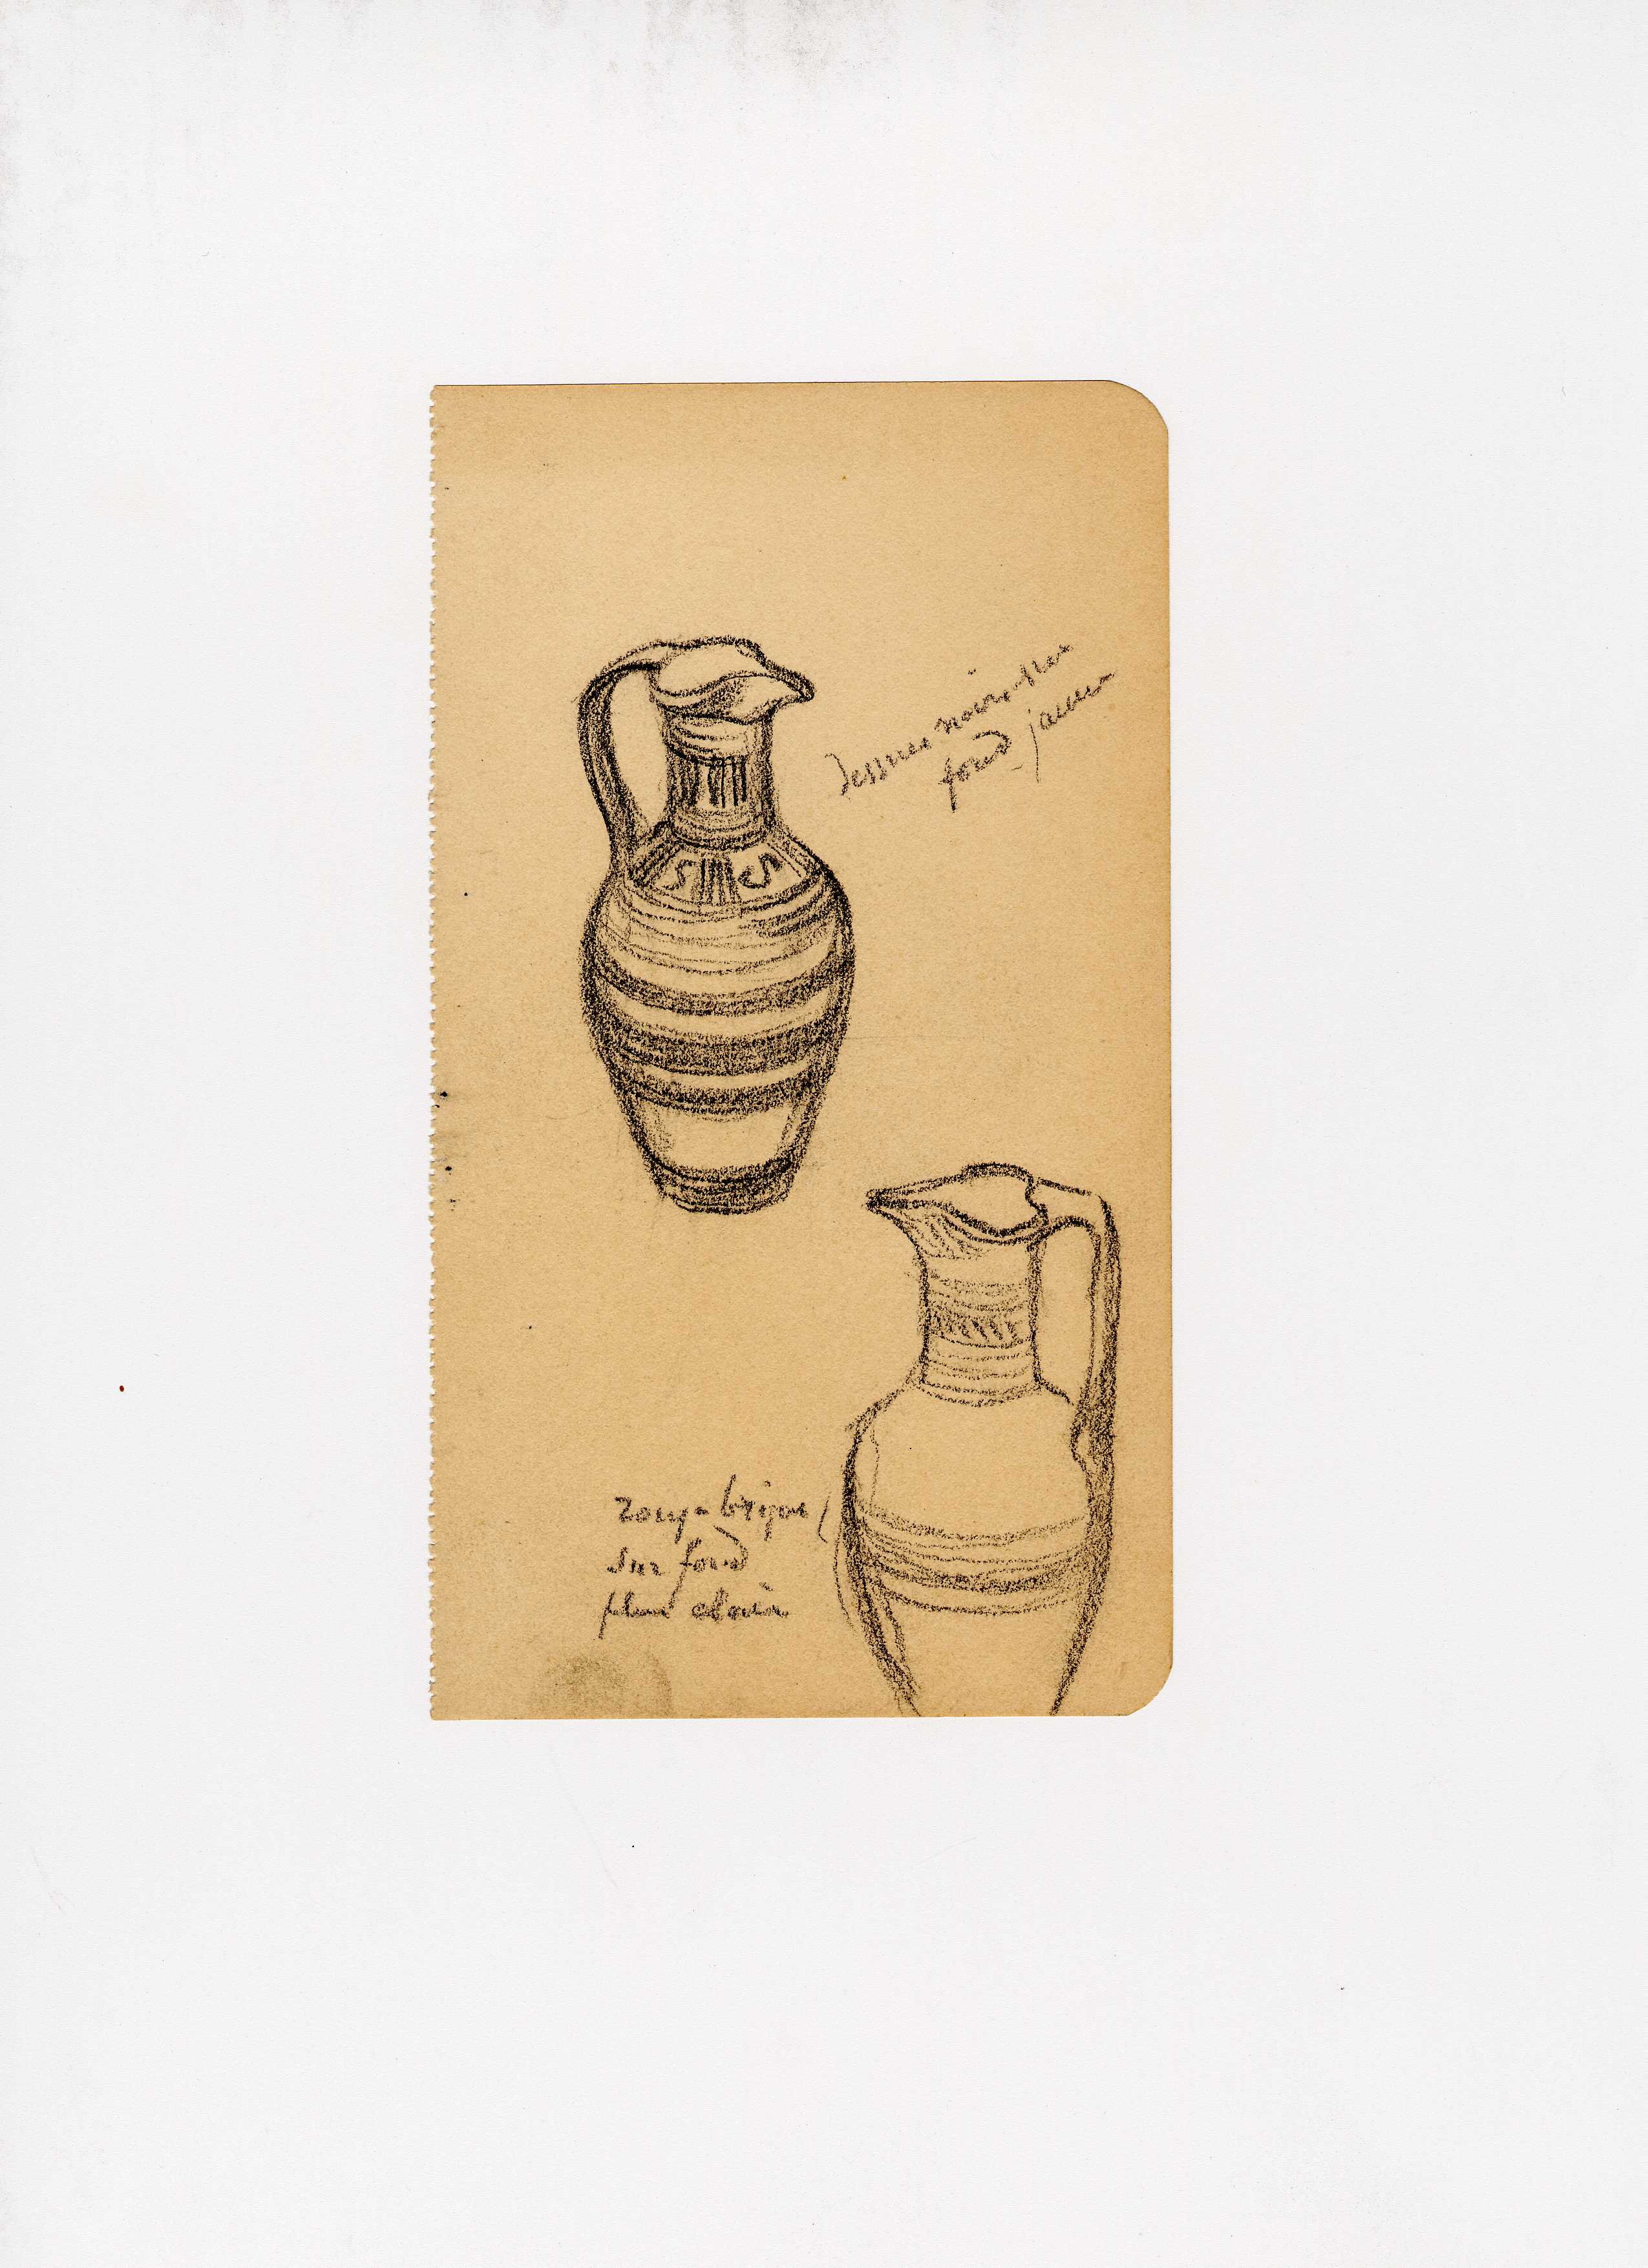 dessins noirs sur
fond jaune
rouge brique
sur fond
plus clair